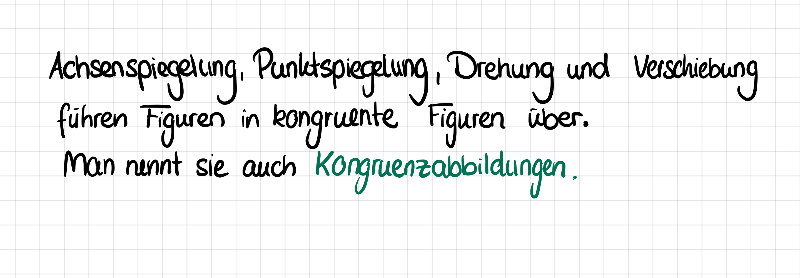 Achsenspiegelung, Punktspiegelung, Drehung und Verschiebung
führen Figuren in kongruente Figuren über.
Man nennt sie auch Kongruenzabbildungen.